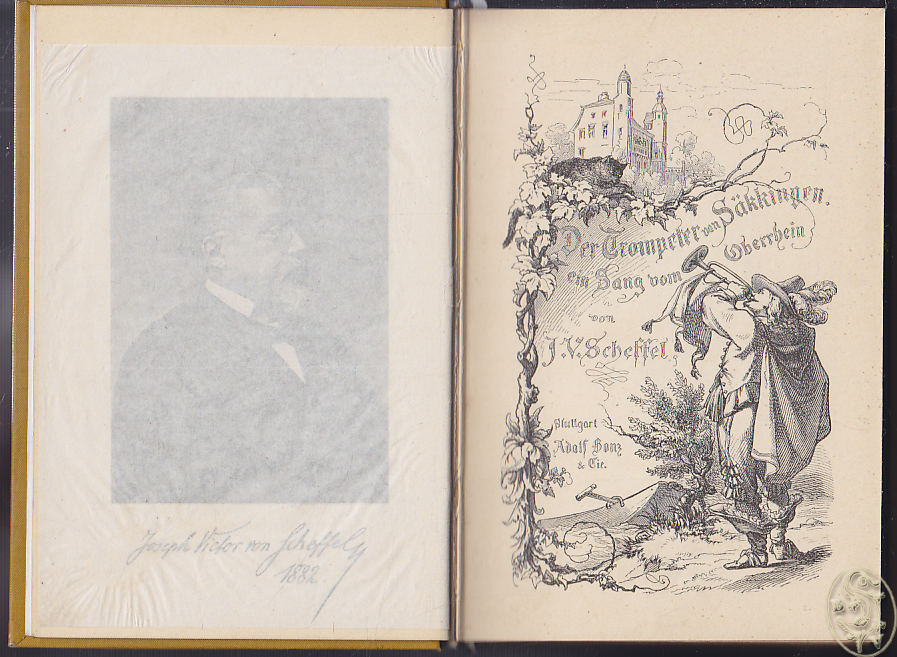 Joseph Victor von Scheffel
1882.
Der Trompeter von Säkkingen.
ein Sang vom Oberrhein
von
J. V. Scheffel.
Stuttgart
Adolf Bonz
& Cie.